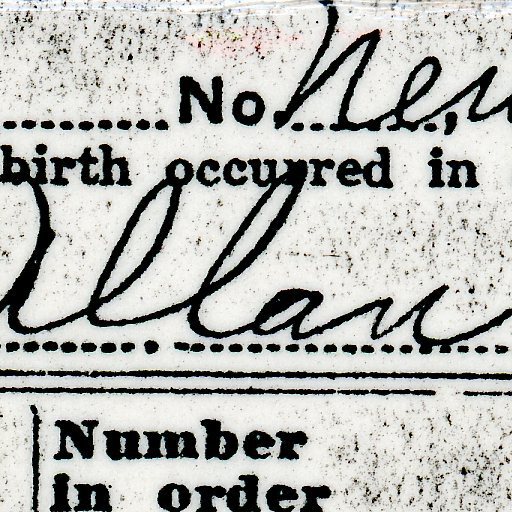 No. New
birth occurred in
Allan
Number
in order